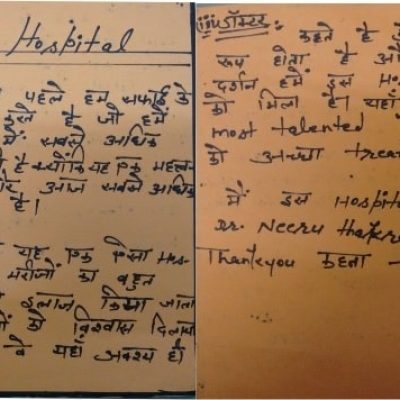 Hospital
पहले हम सफाई को
करते है जो हमें
में सबसे अधिक
है क्योंकि यह एक महत्व
और आज सबसे अधिक
है।
यह एक ऐसा Hos-
मरीजों का बहुत
इलाज किया जाता
को विश्वास दिलाया
वे यहाँ अवश्य हो
डॉक्टर कहते है
रूप होता है औ
दर्शन हमें इस Ho
को मिला है। यहां
most talented
को अच्छा trea
मैं इस Hospita
Dr. Neeru Thaker
Thankyou कहता